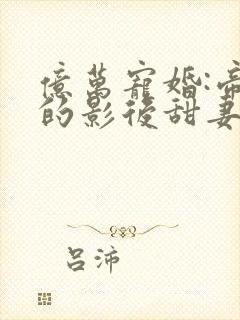 億萬寵婚:帝
的影後甜妻
呂沛